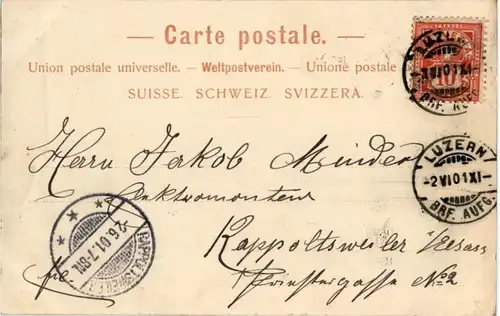 — Carte postale. —
Union postale universelle. — Weltpostverein. — Unione postale
SUISSE. SCHWEIZ. SVIZZERA.
LUZERN
10
-2 VI 01 XI-
BRF. AUFG.
Herrn Jakob Minder
Elektromonteur
Rappoltsweiler i/Elsass
Priestergasse No 2
2.6.01. 7-8N.